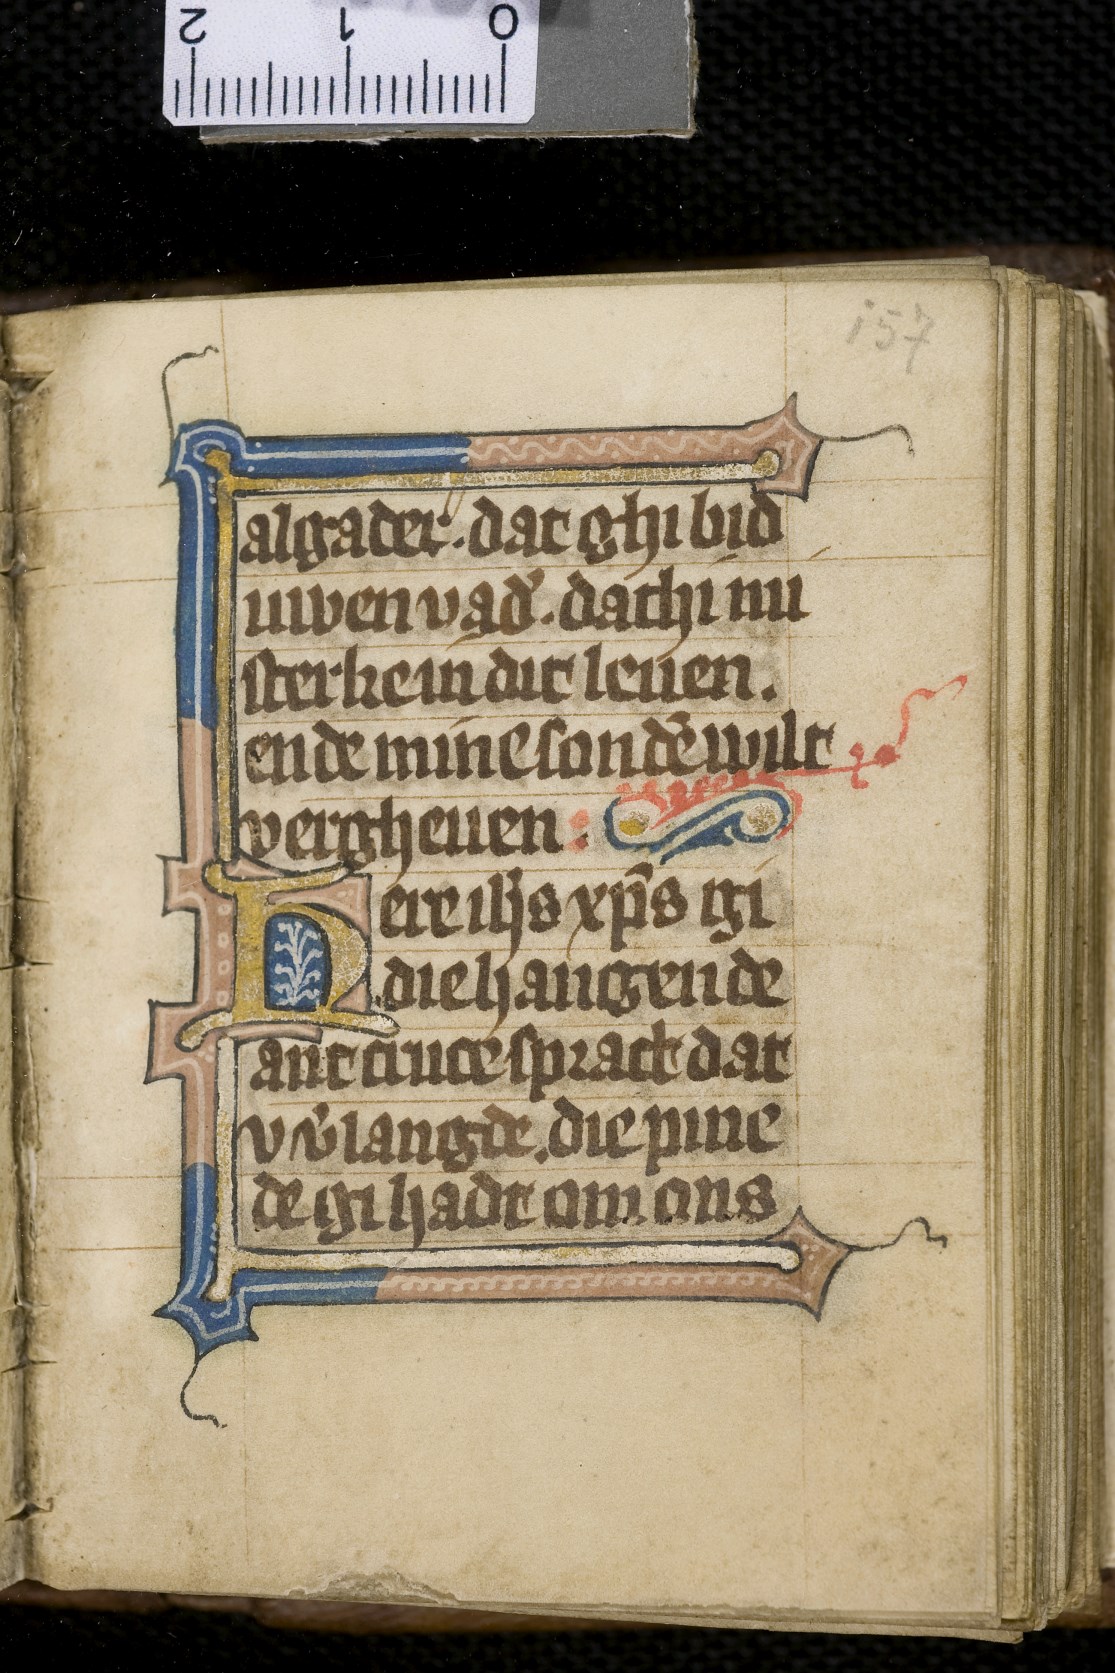 2 1 0
157
algader. dat ghi bid
uwen vad̾. dat hi mi
sterke in dit leuen.
ende mine sondē wilt
vergheuen :
Here ih̄s xp̄s gi
die hangende
ant cruce spract dat
v v̾langde. die pine
de gi hadt om ons